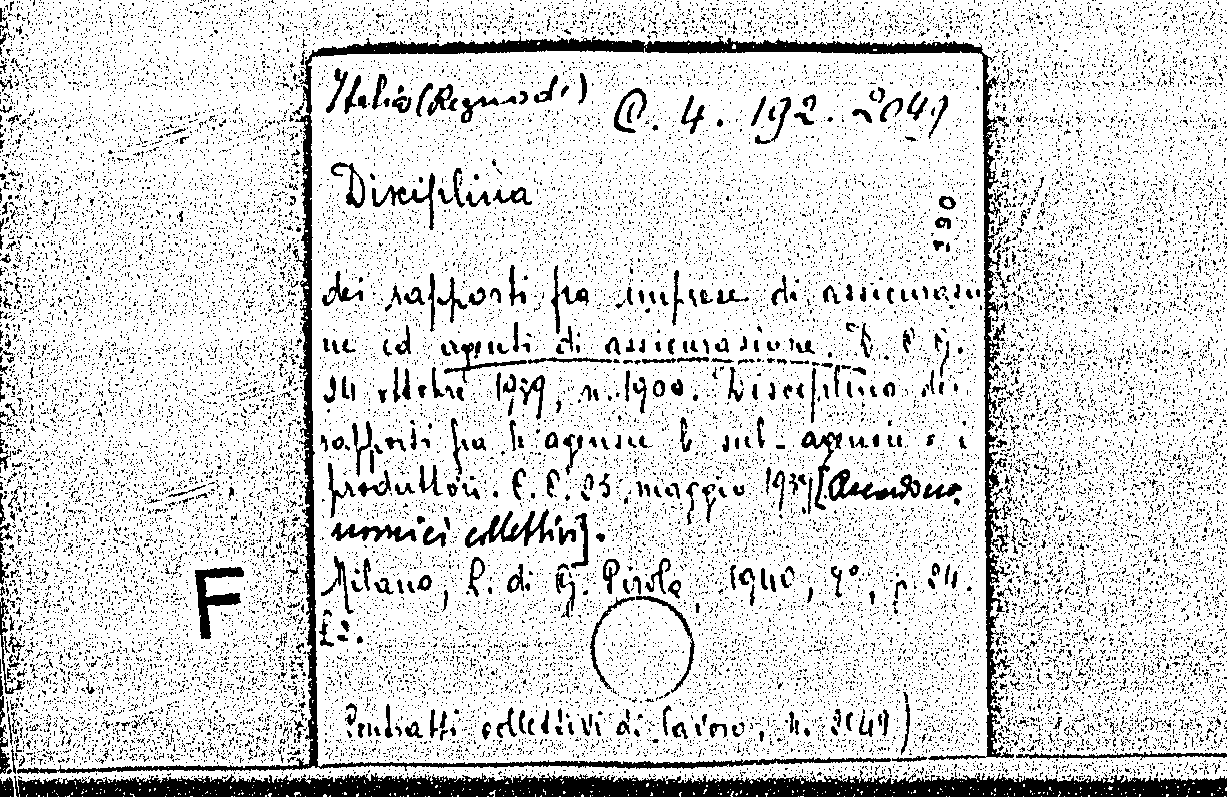 Italia (Regno di) C. 4. 192. 2049
Disciplina
390
dei rapporti fra imprese di assicurazio
ne ed agenti di assicurazione. C. C. G.
24 ottobre 1939, n. 1900. Disciplina dei
rapporti fra le agenzie e sub-agenzie e i
produttori. C. C. 25 maggio 1939 [Accordi eco
nomici collettivi].
Milano, L. di G. Pirola, 1940, 8°, p. 24.
£ 2.
F
Contratti collettivi di lavoro, n. 2049)